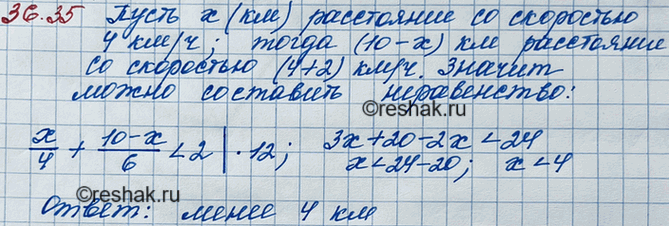 36.35 Пусть x (км) расстояние со скоростью
4 км/ч; тогда (10-x) км расстояние
со скоростью (4+2) км/ч. Значит
можно составить неравенство:
x/4 + (10-x)/6 < 2 | · 12; 3x+20-2x < 24
x < 24-20; x < 4
Ответ: менее 4 км
©reshak.ru
©reshak.ru
©reshak.ru
©reshak.ru